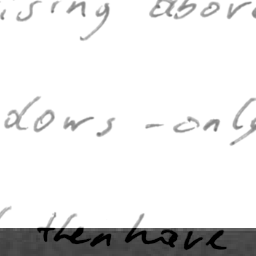 ising above
dows - only
then have